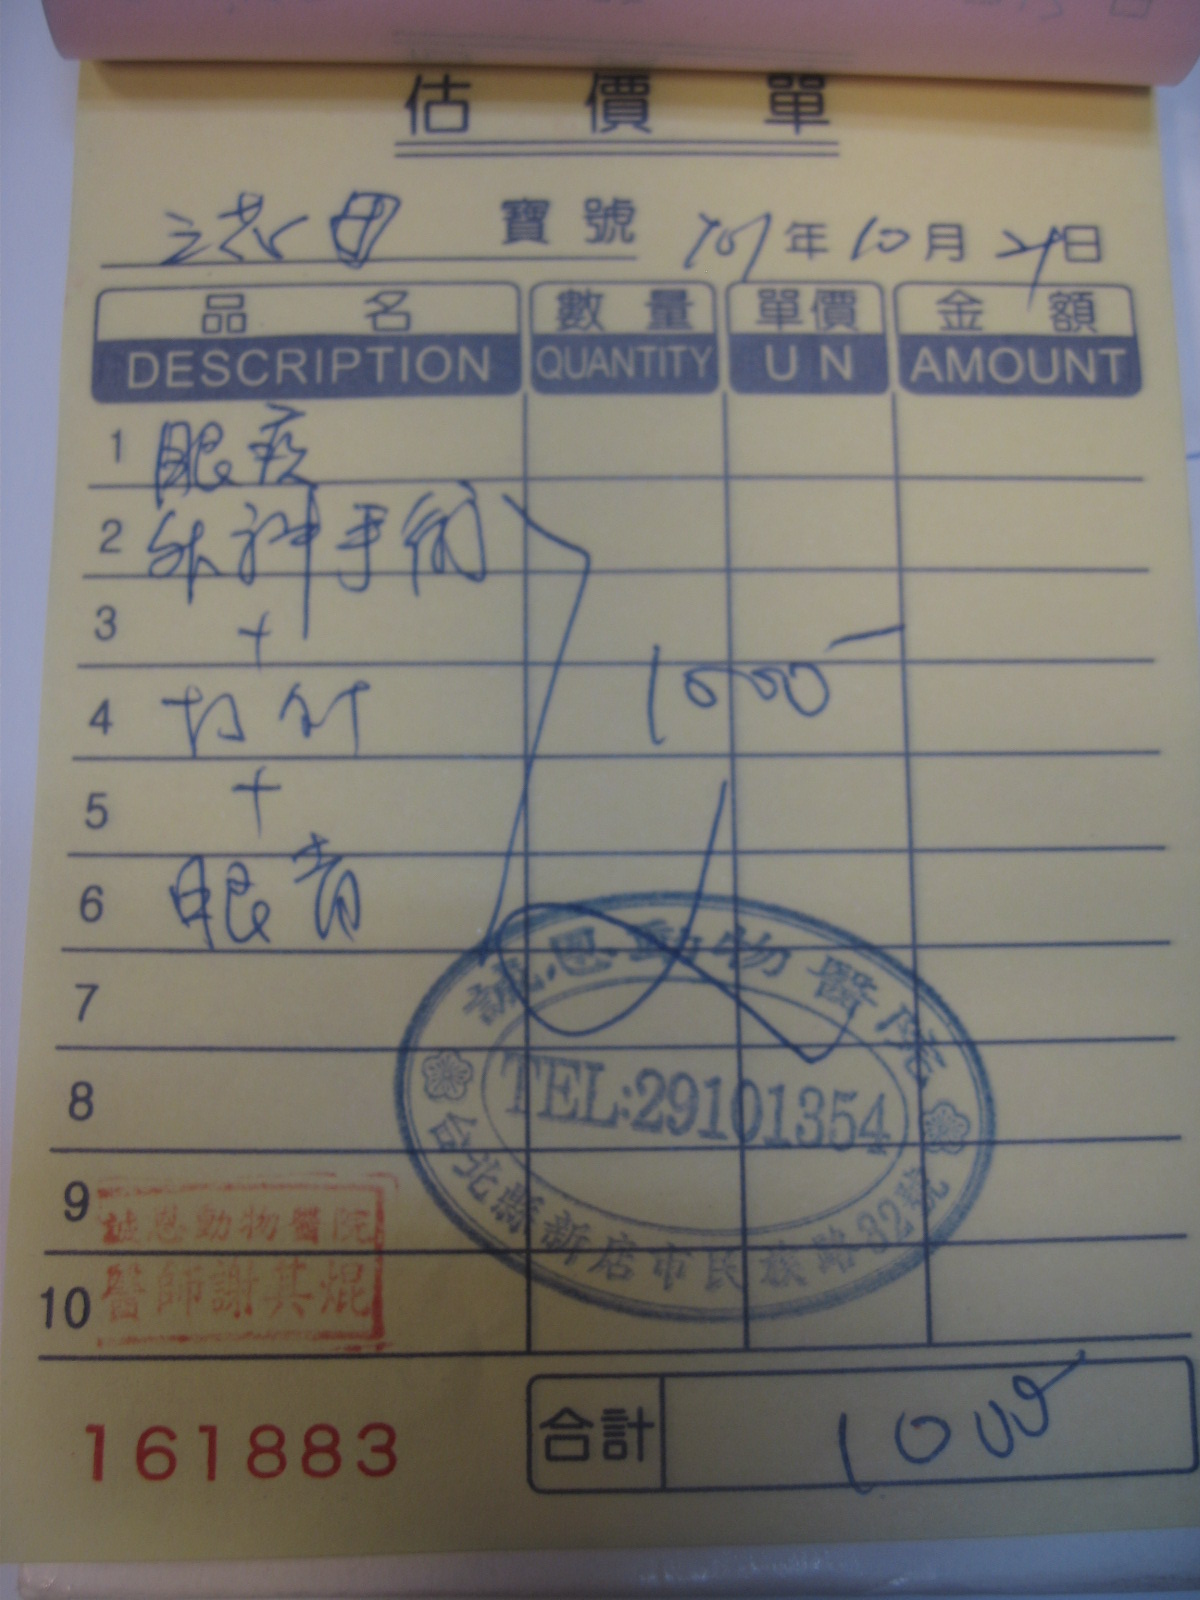 估價單
寶號 101年10月21日
品名 數量 單價 金額
DESCRIPTION QUANTITY U N AMOUNT
1 眼疾
2 外科手術
3 +
1000
4 打針
5 +
6 眼膏
7
誠恩動物醫院
8
TEL:29101354
台北縣新店市民族路32號
9
誠恩動物醫院
10
醫師謝其焜
161883
合計 1000